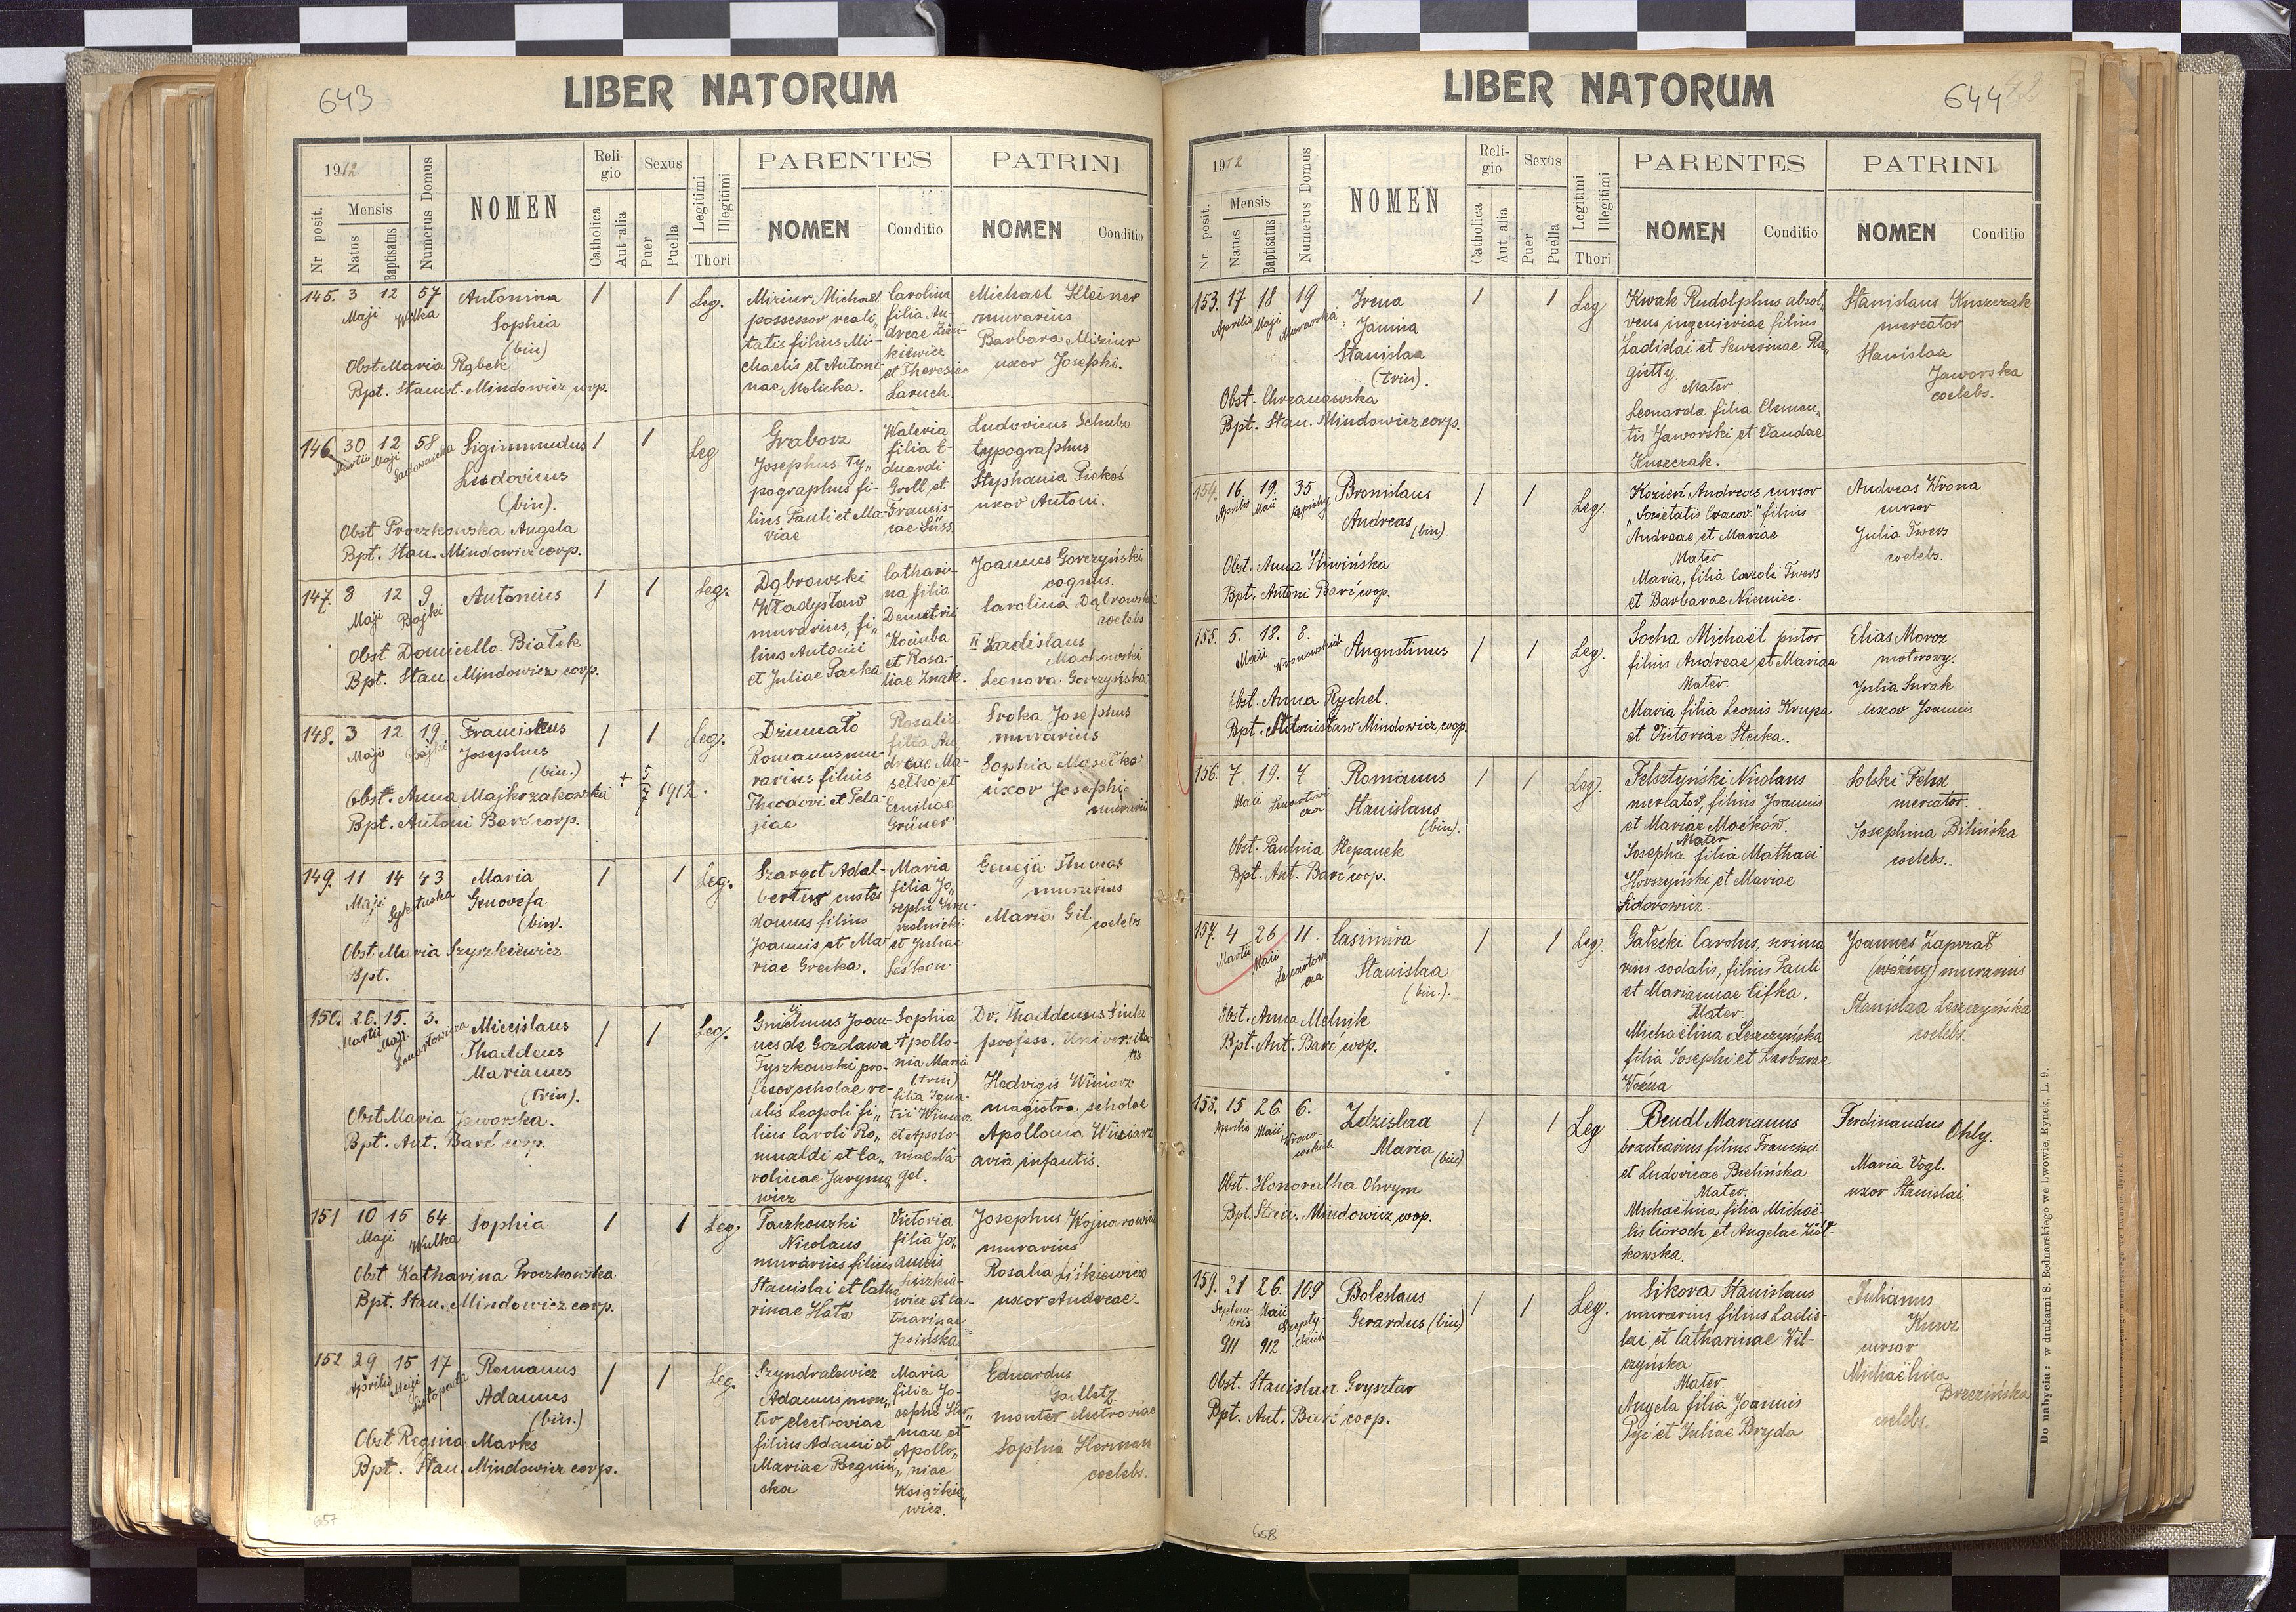 643
LIBER NATORUM
1912
Nr. posit.
Mensis
Natus
Baptisatus
Numerus Domus
NOMEN
Religio
Catholica
Aut alia
Sexus
Puer
Puella
Legitimi
Illegitimi
Thori
PARENTES
NOMEN
Conditio
PATRINI
NOMEN
Conditio
145. 3 12 57 Antonina / / Leg.
Maji Wulka Sophia
(bin)
Obst Maria Rąbek
Bpt. Stanisl. Mindowicz coop.
Miziur Michael
possessor reali„
tatis filius Mi-
chaelis et Antoni-
nae Molicka.
Carolina
filia An-
dreae
kiewicz
et Theresiae
Laruch
Michael Kleiner
murarius
Barbara Miziur
uxor Josephi.
146 30 12 58 Sigismundus / / Leg
Martii Maji Ludovicus
(bin).
Obst Proczkowska Angela
Bpt. Stan. Mindowicz coop.
Graborz
Josephus Ty„
pographus fi-
lius Pauli et Ma-
riae
Waleria
filia E-
duardi
Groll et
Francis-
cae Süss
Ludovicus Schubs
typographus
Stephania Piekoś
uxor Antoni.
147. 8 12 9 Antonius / / Leg.
Maji Bajki
Obst Domicella Białek
Bpt. Stan. Mindowicz coop.
Dąbrowski
Władysław
murarius, fi„
lius Antonii
et Juliae Packa
Cathari-
na filia
Demetrii
Kociuba
et Rosa-
liae Znak.
Joannes Gorczyński
cognus.
Carolina Dąbrowska
coelebs
II Ladislaus
Machowski
Leonora Gorczyńska
148. 3 12 19 Franciscus / / Leg.
Maji Bajki Josephus
(bin.)
+ 5/7 1912.
Obst. Anna Majkrzakowska
Bpt. Antoni Barć coop.
Dziumało
Romanus mu-
rarius filius
Theodori et Pela-
giae
Rosalia
filia An
dreae Ma-
sełko, et
Emiliae
Grüner
Sroka Josephus
murarius
Sophia Masełko
uxor Josephi
murarii
149. 11 14 43 Maria / / Leg.
Maji Sykstuska Genovefa
(bin).
Obst Maria Szyszkiewicz
Bpt.
Szargot Adal-
bertus custos
domus filius
Joannis et Ma
riae Grecka.
Maria
filia Jo„
sephi
et Juliae
Thomas
murarius
Maria Gil
coelebs
150. 26. 15. 3. Miecislaus / / Leg.
Martii Maji. Lenartowicza Thaddeus
Marianus
(trin).
Obst Maria Jaworska.
Bpt. Ant. Barć coop.
Joan-
nes de Gozdawa
Tyszkowski pro-
fesor scholae re-
alis Leopoli fi„
lius Caroli Ro„
mualdi et Ca„
rolinae Jaryma
wicz
Sophia
Apollo-
nia Maria
(trin)
filia Igna-
tii Winiarz
et Apolo
niae Na-
gel.
Dr. Thaddeus Sinko
profess. Universita
tis
Hedvigis Winiarz
magistra scholae
Apollonia Winiarz
avia infantis.
151 10 15 64 Sophia / / Leg.
Maji Wulka
Obst Katharina Proczkowska
Bpt. Stan. Mindowicz coop.
Paczkowski
Nicolaus
murarius filius
Stanislai et Catha
rinae Hata
Victoria
filia Jo„
annis
wicz et Ca-
tharinae
Jasińska
Josephus Wojnarowicz
murarius
Rosalia Liśkiewicz
uxor Andreae
152 29 15 17 Romanus / / Leg.
Aprilis Maji Listopada Adamus
(bin.)
Obst Regina Marks
Bpt. Stan. Mindowicz coop.
Szyndralewicz
Adamus mon„
ter electroviae
filius Adami et
Mariae Begniń„
ska
Maria
filia Jo-
sephi Her„
man et
Apollo„
niae
Książkie„
wicz.
Eduardus
Galletz
monter electroviae
Sophia Herman
coelebs.
657
LIBER NATORUM
644
1912
Nr. posit.
Mensis
Natus
Baptisatus
Numerus Domus
NOMEN
Religio
Catholica
Aut alia
Sexus
Puer
Puella
Legitimi
Illegitimi
Thori
PARENTES
NOMEN
Conditio
PATRINI
NOMEN
Conditio
153. 17 18 19 Irena / / Leg
Aprilis Maji Murarska Janina
Stanislaa
(trin).
Obst. Chrzanowska
Bpt. Stan. Mindowicz coop.
Kwak Rudolphus absol„
vens ingenieriae filius
Ladislai et Severinae Ra„
gietty.
Mater
Leonarda filia Clemen„
tis Jaworski et Vandae
Kuszczak.
Stanislaus Kuszczak
mercator
Stanislaa
Jaworska
coelebs.
154. 16. 19. 35 Bronislaus / / Leg.
Aprilis Maii Sapiehy Andreas (bin).
Obst. Anna Śliwińska
Bpt. Antoni Barć coop.
Kozień Andreas cursor
„Societatis Cracov." filius
Andreae et Mariae
Mater
Maria, filia Caroli Twers
et Barbarae Niemiec.
Andreas Wrona
cursor
Julia Twers
coelebs.
155. 5. 18. 8. Augustinus / / Leg.
Maii Wronowskich
Obst. Anna Rychel.
Bpt. Stanisław Mindowicz coop.
Socha Michaël pistor
filius Andreae et Mariae
Mater.
Maria filia Leonis Krupa
et Victoriae Stecka.
Elias Moroz
motorowy.
Julia Surak
uxor Joannis
156. 7. 19. 7 Romanus / / Leg.
Maii Lenartowicza Stanislaus
(bin).
Obst. Paulina Stepanek
Bpt. Ant. Barć coop.
Felsztyński Nicolaus
mercator, filius Joannis
et Mariae Maćków.
Mater
Josepha filia Mathaei
Horszyński et Mariae
Sidorowicz.
Solski Felix
mercator.
Josephina Bilińska
coelebs.
157. 4 26 11 Casimira / / Leg.
Martii Maii Lenartowicza Stanislaa
(bin.).
Obst. Anna Melnik
Bpt. Ant. Barć coop.
Gałecki Carolus, scrina
rius sodalis, filius Pauli
et Mariannae Cifka.
Mater
Michaëlina Leszczyńska
filia Josephi et Barbarae
Woźna
Joannes Zaprzał
(woźny) murarius
Stanislaa Leszczyńska
coelebs.
158. 15 26 6. Zdzislaa / / Leg
Aprilis Maii Wronowskich Maria (bin)
Obst. Honoratha Ohrym
Bpt. Stan. Mindowicz coop.
Bendl Marianus
bractearius filius Francisci
et Ludovicae Bielińska
Mater.
Michaëlina filia Michaë-
lis Cioroch et Angelae Ziół-
kowska.
Ferdinandus Ohly.
Maria Vogl.
uxor Stanislai
159. 21 26. 109 Boleslaus / / Leg.
Septembris Maii Szeptyckich Gerardus (bin)
911 912
Obst. Stanislaa Grysztar
Bpt. Ant. Barć coop.
Sikora Stanislaus
murarius filius Ladis-
lai et Catharinae Wil-
czyńska
Mater.
Angela filia Joannis
Pyć et Juliae Bryda
Julianus
Kunz
cursor
Michaëlina
Brzezińska
coelebs.
658
Do nabycia: w drukarni S. Bednarskiego we Lwowie, Rynek, L. 9.